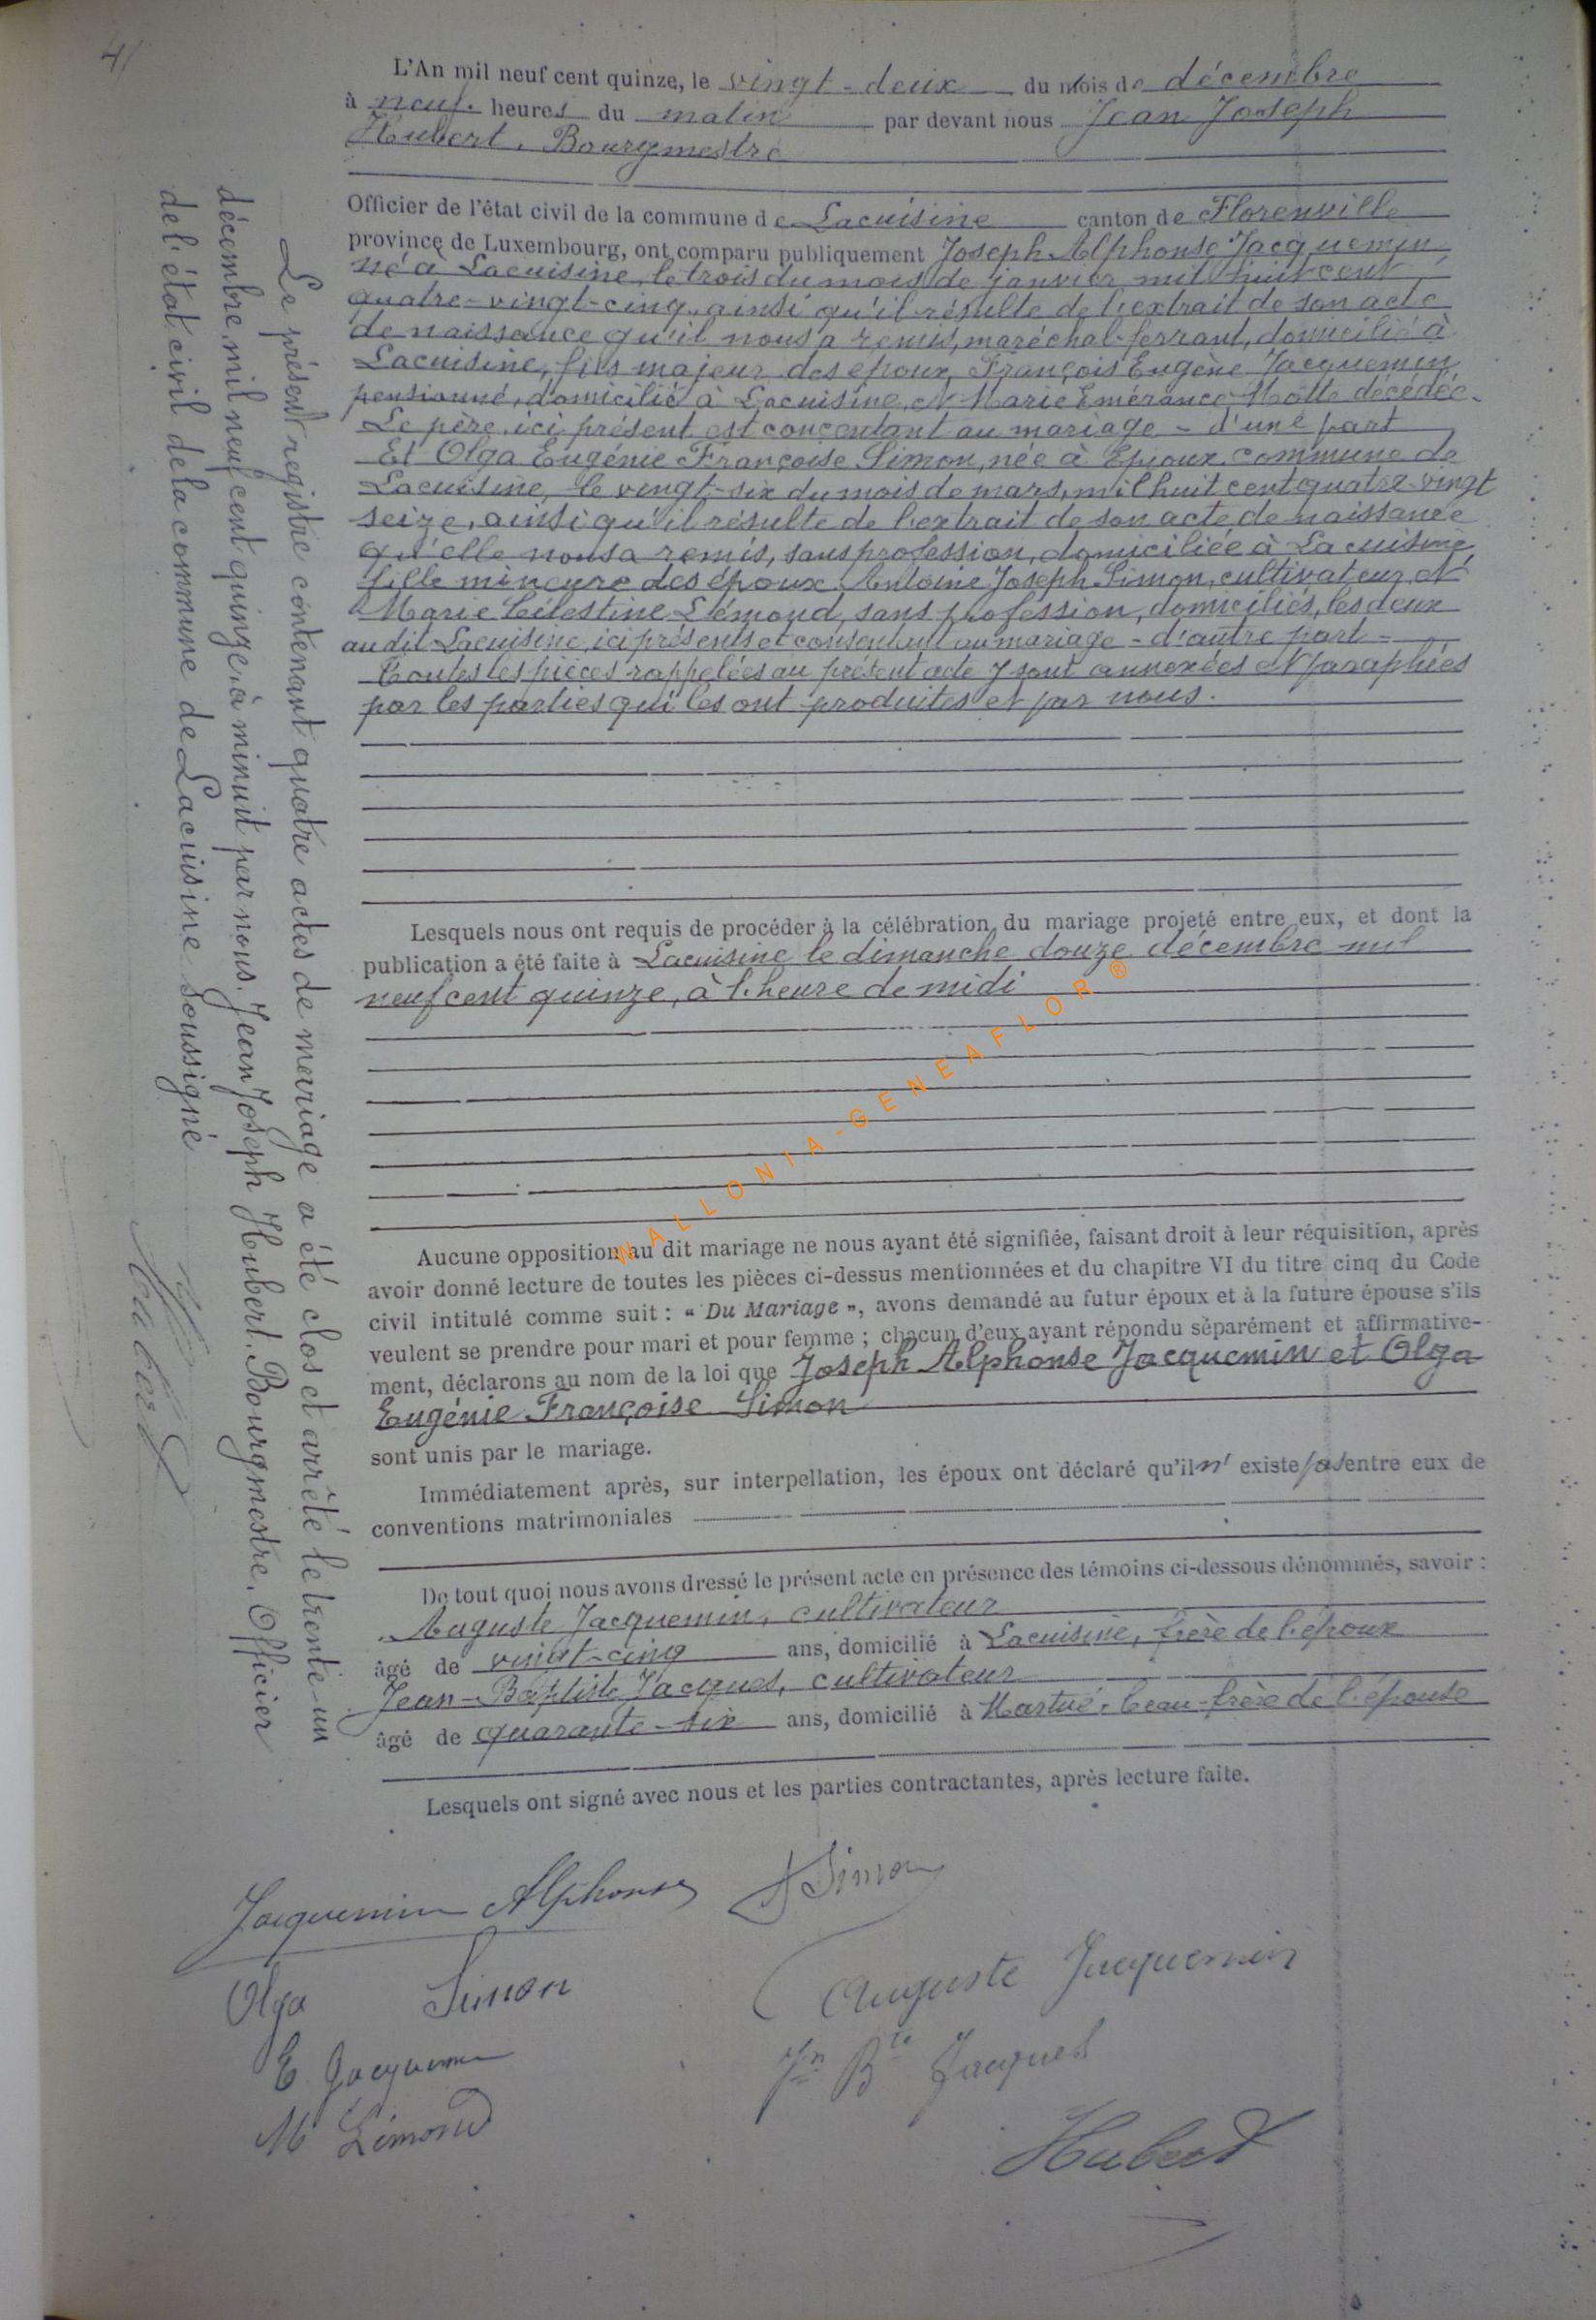 4/
L'An mil neuf cent quinze, le vingt-deux du mois de décembre
à neuf heures du matin par devant nous Jean Joseph
Hubert, Bourgmestre
Officier de l'état civil de la commune de Lacuisine canton de Florenville
province de Luxembourg, ont comparu publiquement Joseph Alphonse Jacquemin
né à Lacuisine, le trois du mois de janvier mil huit cent
quatre-vingt-cinq, ainsi qu'il résulte de l'extrait de son acte
de naissance qu'il nous a remis, maréchal-ferrant, domicilié à
Lacuisine, fils majeur des époux, François Eugène Jacquemin
pensionné, domicilié à Lacuisine, et Marie Emérance Motte décédée.
Le père, ici présent est concentant au mariage - d'une part
Et Olga Eugénie Françoise Simon, née à Epioux, commune de
Lacuisine, le vingt-six du mois de mars, mil huit cent quatre-vingt
seize, ainsi qu'il résulte de l'extrait de son acte de naissance
qu'elle nous a remis, sans profession, domiciliée à Lacuisine,
fille mineure des époux Antoine Joseph Simon, cultivateur, et
Marie Célestine Lémond, sans profession, domiciliés, les deux
au dit Lacuisine, ici présents et consentant au mariage - d'autre part =
Toutes les pièces rappelées au présent acte y sont annexées et paraphées
par les parties qui les ont produites et par nous.
Lesquels nous ont requis de procéder à la célébration du mariage projeté entre eux, et dont la
publication a été faite à Lacuisine le dimanche douze décembre mil
neuf cent quinze, à l'heure de midi
WALLONIA-GENEAFLOR®
Aucune opposition au dit mariage ne nous ayant été signifiée, faisant droit à leur réquisition, après
avoir donné lecture de toutes les pièces ci-dessus mentionnées et du chapitre VI du titre cinq du Code
civil intitulé comme suit : « Du Mariage », avons demandé au futur époux et à la future épouse s'ils
veulent se prendre pour mari et pour femme ; chacun d'eux ayant répondu séparément et affirmative-
ment, déclarons au nom de la loi que Joseph Alphonse Jacquemin et Olga
Eugénie Françoise Simon
sont unis par le mariage.
Immédiatement après, sur interpellation, les époux ont déclaré qu'il n' existe pas entre eux de
conventions matrimoniales
De tout quoi nous avons dressé le présent acte en présence des témoins ci-dessous dénommés, savoir :
Auguste Jacquemin, cultivateur
âgé de vingt-cinq ans, domicilié à Lacuisine, frère de l'époux
Jean-Baptiste Jacques, cultivateur
âgé de quarante-six ans, domicilié à Martué, beau-frère de l'épouse
Lesquels ont signé avec nous et les parties contractantes, après lecture faite.
Jacquemin Alphonse
Simon
Olga Simon
Auguste Jacquemin
E Jacquemin
Jn Bte Jacques
M Lémond
Hubert
Le présent registre contenant quatre actes de mariage a été clos et arrêté le trente-un
décembre mil neuf cent quinze, à minuit par nous, Jean Joseph Hubert, Bourgmestre, Officier
de l'état civil de la commune de Lacuisine soussigné
Hubert